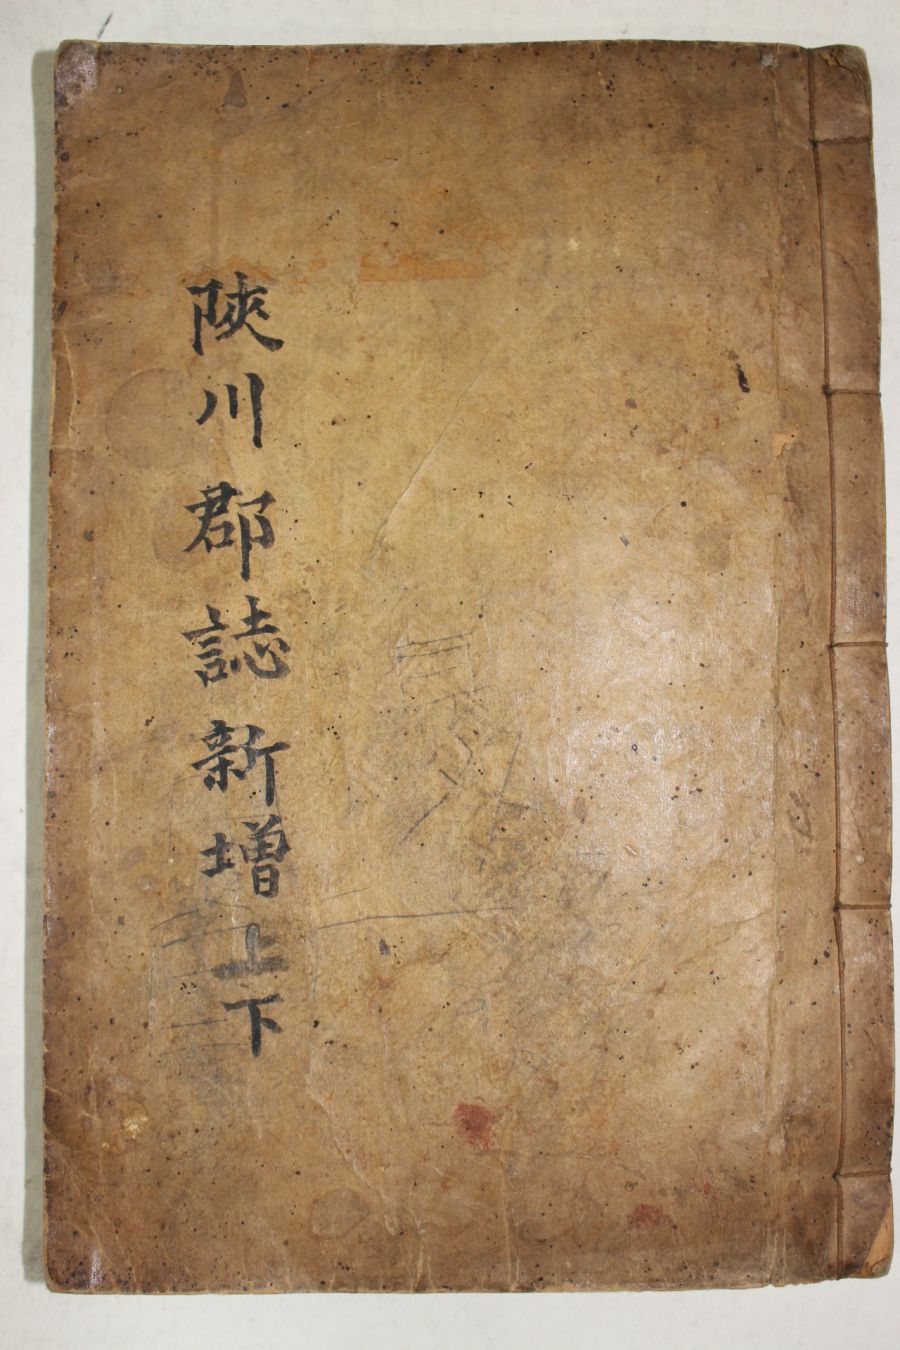 陜川郡誌新增上下